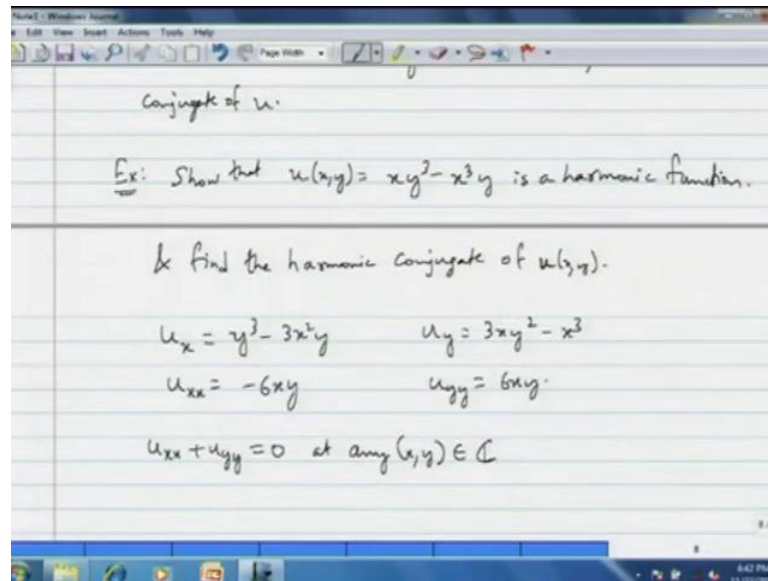 Note1 - Windows Journal
Edit View Insert Actions Tools Help
Page Width
conjugate of u.
Ex: Show that u(x,y) = xy³ - x³y is a harmonic function.
& find the harmonic conjugate of u(x,y).
uₓ = y³ - 3x²y u_y = 3xy² - x³
uₓₓ = -6xy u_yy = 6xy.
uₓₓ + u_yy = 0 at any (x,y) ∈ ℂ
8
6:42 PM